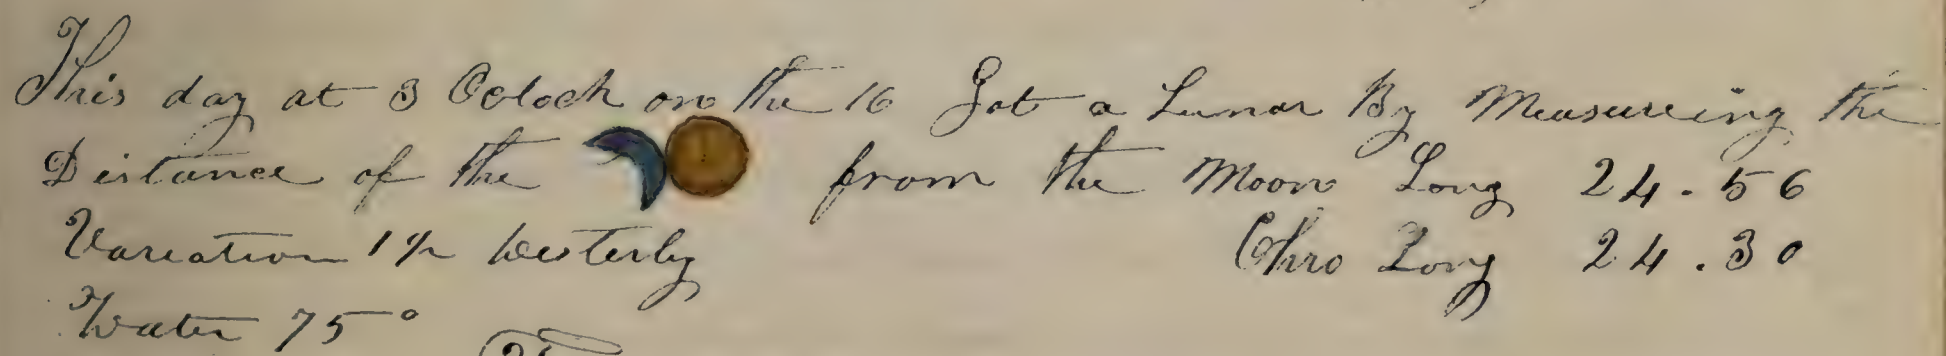 This day at 3 Oclock on the 16 Got a Lunar By Measureing the
Distance of the from the Moon Long 24.56
Variation 1 1/2 Westerly Chro Long 24.30
Water 75°